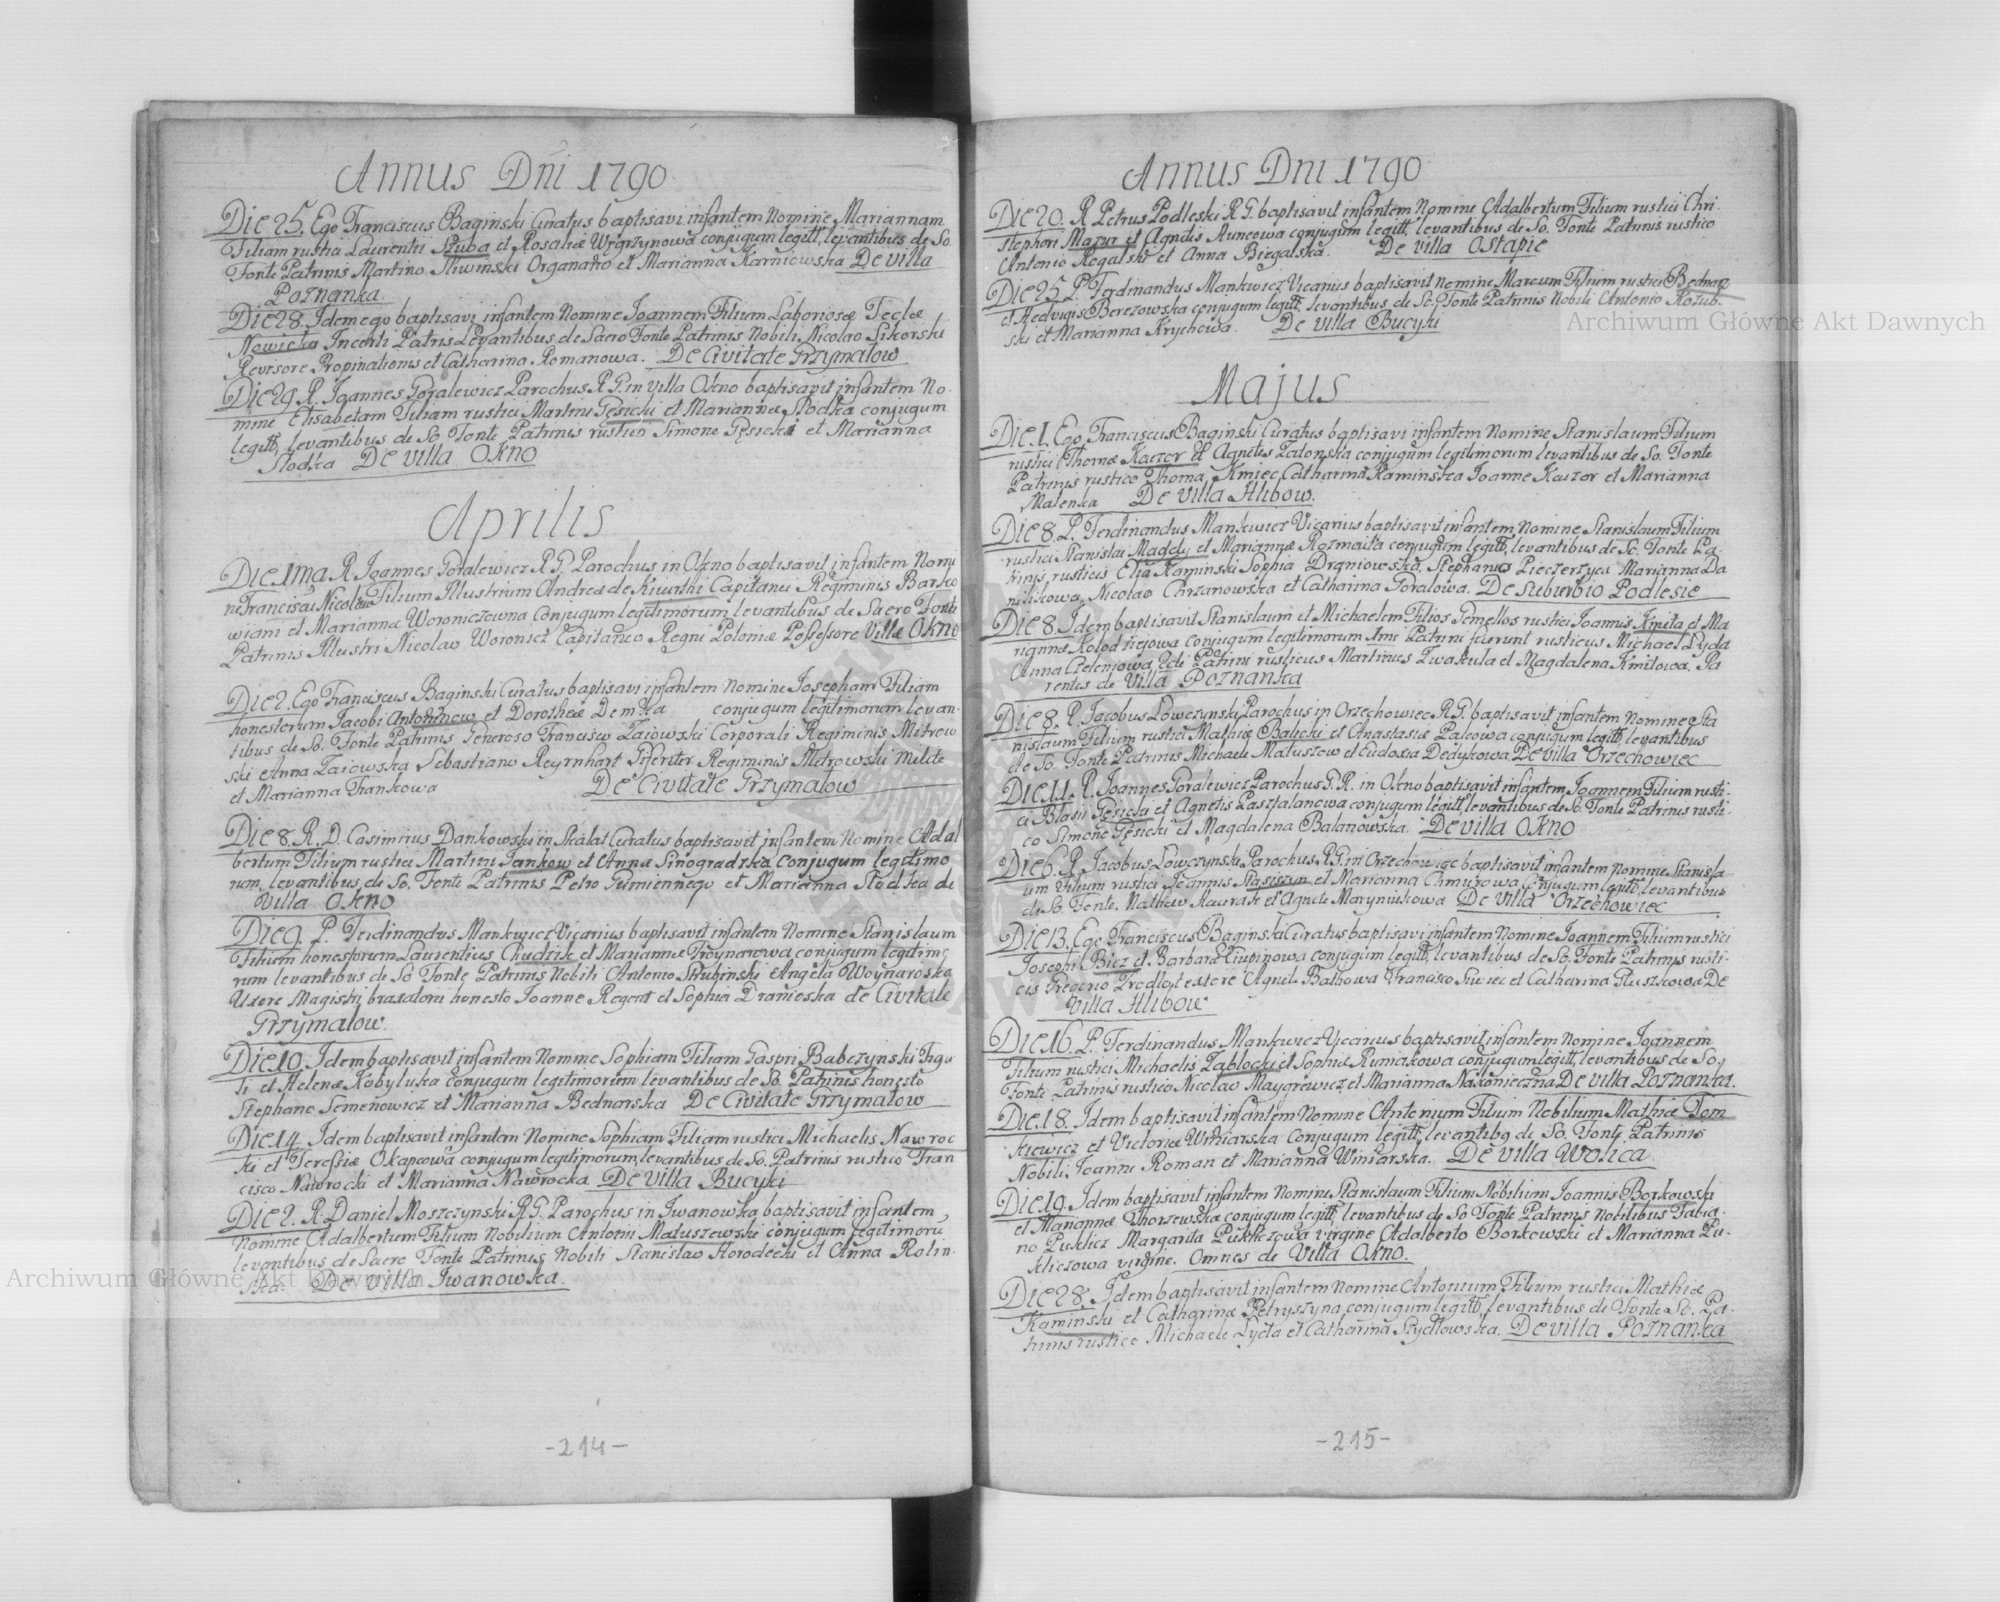 Annus Dni 1790
Die 25. Ego Franciscus Baginski Curatus baptisavi infantem Nomine Mariannam
Filiam rustici Laurentii Szuba et Rosaliæ Węgrzynowa conjugum legitt, levantibus de So.
Fonte Patrinis Martino Sliwinski Organario et Marianna Karniowska De Villa
Poznanka
Die 28. Idem ego baptisavi infantem Nomine Joannem Filium Laboriosæ Teclæ
Nowicka Incerti Patris Levantibus de Sacro Fonte Patrinis Nobili Nicolao Sikorski
Revisore Propinationis et Catharina Romanowa. De Civitate Grzymałow
Die 29. R. Joannes Goralewicz Parochus R. G. in Villa Okno baptisavit infantem No-
mine Elisabetam Filiam rustici Martini Gęsicki et Mariannæ Słodka conjugum
legitt, levantibus de So. Fonte Patrinis rustico Simone Gęsicki et Marianna
Słodka De Villa Okno
Aprilis
Die 1ma R. Joannes Goralewicz R. G. Parochus in Okno baptisavit infantem Nomi
ne Francisci Nicolaum Filium Illustrium Andreæ de Capitanei Regiminis Barko
wiani et Mariannæ Woroniczowna Conjugum legitimorum levantibus de Sacro Fonte
Patrinis Illustri Nicolao Woronicz Capitaneo Regni Poloniæ Possessore Villæ Okno
Die 2. Ego Franciscus Baginski Curatus baptisavi infantem Nomine Josepham Filiam
honestorum Jacobi Antoninow et Dorotheæ Demka conjugum legitimorum levan-
tibus de So. Fonte Patrinis Generoso Francisco Zaiowski Corporali Regiminis Mitrow
ski Anna Zaiowska Sebastiano Reyrnhart Regiminis Mitrowski Milite
et Marianna Frankowa De Civitate Grzymałow
Die 8. R. D. Casimirus Dankowski in Skałat Curatus baptisavit infantem Nomine Adal
bertum Filium rustici Martini Jankow et Anna Sinogradzka Conjugum legitimo
rum, levantibus de So. Fonte Patrinis Petro Gumiennego et Marianna Słodka de
Villa Okno
Die 9. P. Ferdinandus Mankwicz Vicarius baptisavit infantem Nomine Stanislaum
Filium honestorum Laurentius Chudzik et Mariannæ Woynarowa conjugum legitimo
rum levantibus de So Fonte Patrinis Nobili Antonio Angela Woynaroska
Uxore Magistri braxatorii honesto Joanne Regent et Sophia Dranieska de Civitate
Grzymałow.
Die 10. Idem baptisavit infantem Nomine Sophiam Filiam Gaspri Babczynski Figu
li et Helenæ Kobyluka Conjugum legitimorum levantibus de So. Patrinis honesto
Stephano Semenowicz et Marianna Bednarska De Civitate Grzymałow
Die 14 Idem baptisavit infantem Nomine Sophiam Filiam rustici Michaelis Nawroc
ki et Teressiæ Okapcowa conjugum legitimorum, levantibus de So. Patrinis rustico Fran
cisco Nawrocki et Marianna Nawrocka De Villa Bucyki
Die 2. R. Daniel Moszczynski R. G. Parochus in Iwanowka baptisavit infantem
Nomine Adalbertum Filium Nobilium Antonii Matuszewski conjugum legitimorũ
levantibus de Sacro Fonte Patrinis Nobili Stanislao Horodecki et Anna Rolin-
ska. De Villa Iwanowka.
-214-
Annus Dni 1790
Die 20. R Petrus Podleski R G. baptisavit infantem Nomine Adalbertum Filium rustici Chri-
stephori Mazur et Agnetis conjugum legitt, levantibus de So. Fonte Patrinis rustico
Antonio Rogalski et Anna Biegalska. De Villa Ostapie
Die 25. P. Ferdinandus Mankwicz Vicarius baptisavit Nomine Marcum Filium rustici Bednarz
et Hedvigis Berezowska conjugum legitt, levantibus de So. Fonte Patrinis Nobili Antonio Kozub-
ski et Marianna Krychowa. De Villa Bucyki
Majus
Die 1. Ego Franciscus Baginski Curatus baptisavi infantem Nomine Stanislaum Filium
rustici Thomæ Kaczor et Agnetis Zatonska conjugum legitimorum levantibus de So. Fonte
Patrinis rustico Thoma Kmiec Catharina Kaminska Joanne Kaczor et Marianna
Malenka De Villa Hlibow.
Die 8. P. Ferdinandus Mankwicz Vicarius baptisavit infantem Nomine Stanislaum Filium
rustici Stanislai Magdy et Mariannæ Rozmaita conjugum legitt, levantibus de So. Fonte Pa-
trinis rusticis Elia Kaminski Sophia Draniowska, Stephano Pieczerzyca Marianna Da
niłikowa, Nicolao Chrzanowska et Catharina Goralowa. De Suburbio Podlesie
Die 8. Idem baptisavit Stanislaum et Michaelem Filios Gemellos rustici Joannis Kmita et Ma
riannæ Kołodziejowa conjugum legitimorum 1mi Patrini fuerunt rusticus Michael Łyda
Anna Cieleniowa, 2di Patrini rusticus Martinus Zwakula et Magdalena Kmitowa. Pa
rentes de Villa Poznanka
Die 8. R. Jacobus Łowczynski Parochus in Orzechowiec R G. baptisavit infantem Nomine Sta
nislaum Filium rustici Mathiæ Balicki et Anastasiæ Palcowa conjugum legitt, levantibus
de So. Fonte Patrinis Michaele Matuszow et Eudoxia Dedykowa De Villa Orzechowiec
Die 11. R. Joannes Goralewicz Parochus G. R. in Okno baptisavit infantem Joannem Filium rusti-
ci Blasii Gęsicki et Agnetis Pasztalancwa conjugum legitt, levantibus de So. Fonte Patrinis rusti-
co Simone Gęsicki et Magdalena Balanowska. De Villa Okno
Die 6. R. Jacobus Łowczynski Parochus R G. in Orzechowiec baptisavit infantem Nomine Stanisla
um Filium rustici Joannis Stasiszyn et Marianna Chmurowa Conjugum legitt, levantibus
de So. Fonte. Matheo Hawrak et Agnete Marynuikowa De Villa Orzechowiec
Die 13. Ego Franciscus Baginski Curatus baptisavi infantem Nomine Joannem Filium rustici
Josephi Bicz et Barbara Ciupinowa conjugum legitt, levantibus de So. Fonte Patrinis rusti-
cis Gregorio Francisco et Catharina Ruszkowa De
Villa Hlibow
Die 16. P. Ferdinandus Mankwicz Vicarius baptisavit infantem Nomine Joannem
Filium rustici Michaelis Zabłocki et Sophiæ Rumiakowa conjugum legitt, levantibus de So.
Fonte Patrinis rustico Nicolao Maygrewicz et Marianna Nakonieczna De Villa Poznanka.
Die 18. Idem baptisavit infantem Nomine Antonium Filium Nobilium Mathiæ Tom
kiewicz et Victoriæ Winiarska Conjugum legitt, levantibg de So. Fonte Patrinis
Nobili Joanni Roman et Marianna Winiarska. De Villa Wolica
Die 19. Idem baptisavit infantem Nomine Stanislaum Filium Nobilium Joannis Borkowski
et Mariannæ Thorzewska conjugum legitt, levantibus de So Fonte Patrinis Nobilibus Fabia-
no Puklicz Margarita Puklczowa virgine Adalberto Borkowski et Marianna Pu-
kliczowa virgine. Omnes de Villa Okno.
Die 28. Idem baptisavit infantem Nomine Antonium Filium rustici Mathiæ
Kaminski et Catharinæ Petryszyna, conjugum legitt, levantibus de Fonte So. Pa-
trinis rustico Michaele Łyda et Catharina Szydłowska. De Villa Poznanka
-215-
Archiwum Główne Akt Dawnych
Archiwum Główne Akt Dawnych